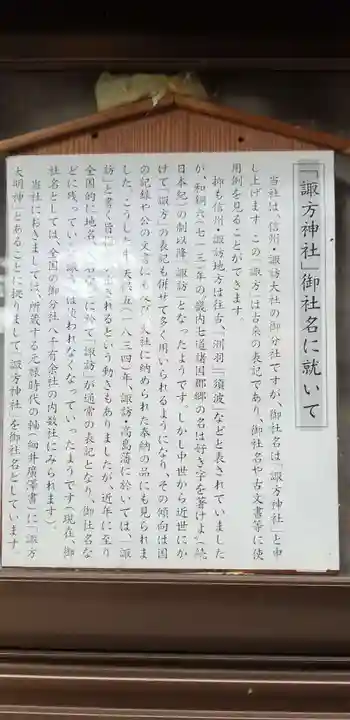 「諏方神社」御社名に就いて
当社は、信州・諏訪大社の御分社ですが、御社名は「諏方神社」と申
し上げます。この「諏方」は古来の表記であり、御社名や古文書等に使
用例を見ることができます。
抑も信州・諏訪地方は往古、「洲羽」「須波」などと表されていました
が、和銅六(七一三)年の「畿内七道諸国郡郷の名は好き字を著けよ(続
日本紀)」の制以降「諏訪」となったようです。しかし中世から近世にか
けて「諏方」の表記も併せて多く用いられるようになり、その傾向は国
の記録や公の文書にも及び、大社に納められた奉納の品にも見られま
した。こうした中、天保五(一八三四)年、諏訪・高島藩に於いては、「諏
訪」と書く旨 されるという動きもありましたが、近年に至り
全国的に地名 に於て「諏訪」が通常の表記となり、御社名な
どに残ってい 「諏 は使われなくなっていったようです(現在、御
社名としては、全国の御分社八千有余社の内数社にみられます)。
当社におきましては、所蔵する元禄時代の軸(細井廣澤書)に「諏方
大明神」とあることに拠りまして「諏方神社」を御社名としています。